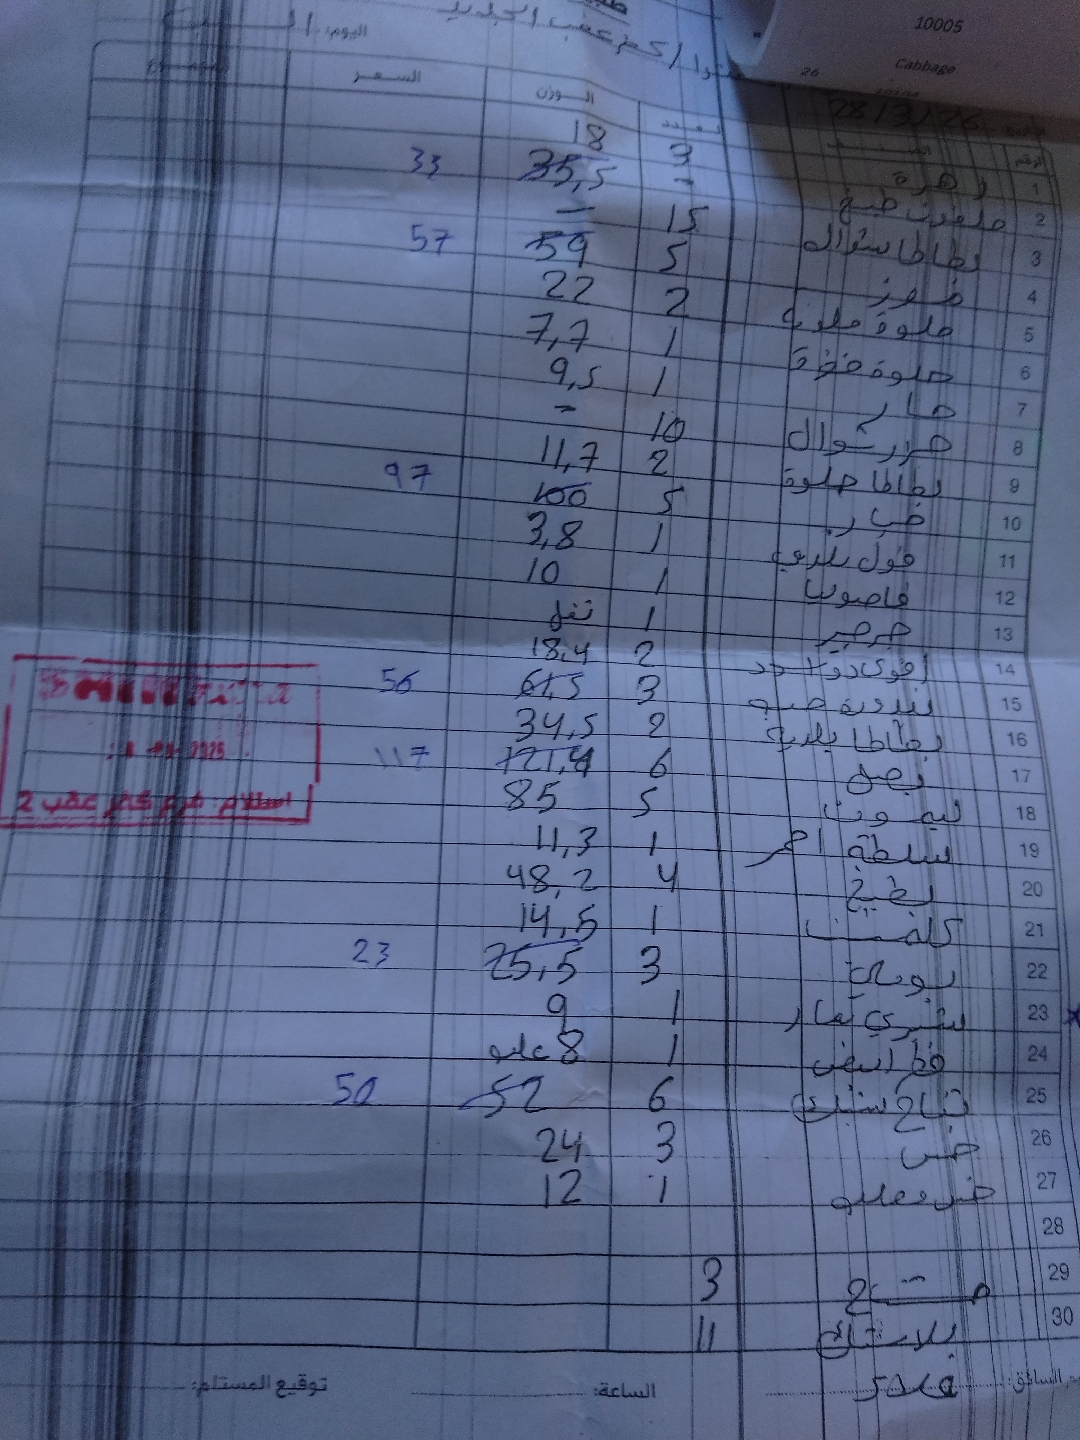 10005
Cabbage
26
اليوم: السبت
28/3/26
الرقم العدد الوزن السعر
1 زهرة 3 18
2 ملفوف طبيخ - 35,5 33
3 بطاطا شوال 15 -
4 موز 5 59 57
5 حلوة ملونة 2 22
6 حلوة خضرة 1 7,7
7 حار 1 9,5
8 جزر شوال 10 -
9 بطاطا حلوة 2 11,7
10 خيار 5 100 97
11 فول بلدي 1 3,8
12 فاصوليا 1 10
13 جرجير 1
14 2 18,4
15 بندورة 3 61,5 56
16 بطاطا بلدية 2 34,5
17 بصل 6 121,4 117
18 ليمون 5 85
19 سلطة احمر 1 11,3
20 بطيخ 4 48,2
21 كلمنتينا 1 14,5
22 بوملي 3 25,5 23
23 1 9
24 فطر ابيض 1 8 علب
25 تفاح 6 52 50
26 خس 3 24
27 خس 1 12
28
29 3
30 بلاستيك 11
2025
استلام: فرع كفر عقب 2
الساعة:
توقيع المستلم: